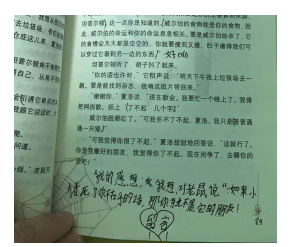 坦普尔顿，这一点你是知道的。威尔伯的食物就是你的食物，因
此，威尔伯的命运和你的命运息息相关。要是威尔伯给杀了，它
的食槽会天天都是空空的，你就要瘦而又瘦，肚子瘪得我们可
以穿过它看到另一边的东西。"
坦普尔顿听了，胡子抖了起来。
"你的话也许对。"它粗声说，"明天下午我上垃圾场去一
趟，要是能找到杂志，我啃点纸片带回来。"
"谢谢你，"夏洛说，"现在散会。我要忙一个晚上了。我得
把网拆散，织上'了不起'几个字。"
威尔伯脸都红了。"可我并不了不起，夏洛。我只是普普通
通一只猪。"
"可我觉得你很了不起，"夏洛甜甜地回答说，"这就行了。
你是我最好的朋友，我觉得你了不起。现在别争了，去睡你的
觉吧！"
我的感想：我想对老鼠说"如果小
猪死了你不在乎的话，那你就不是它的朋友！
留言
89